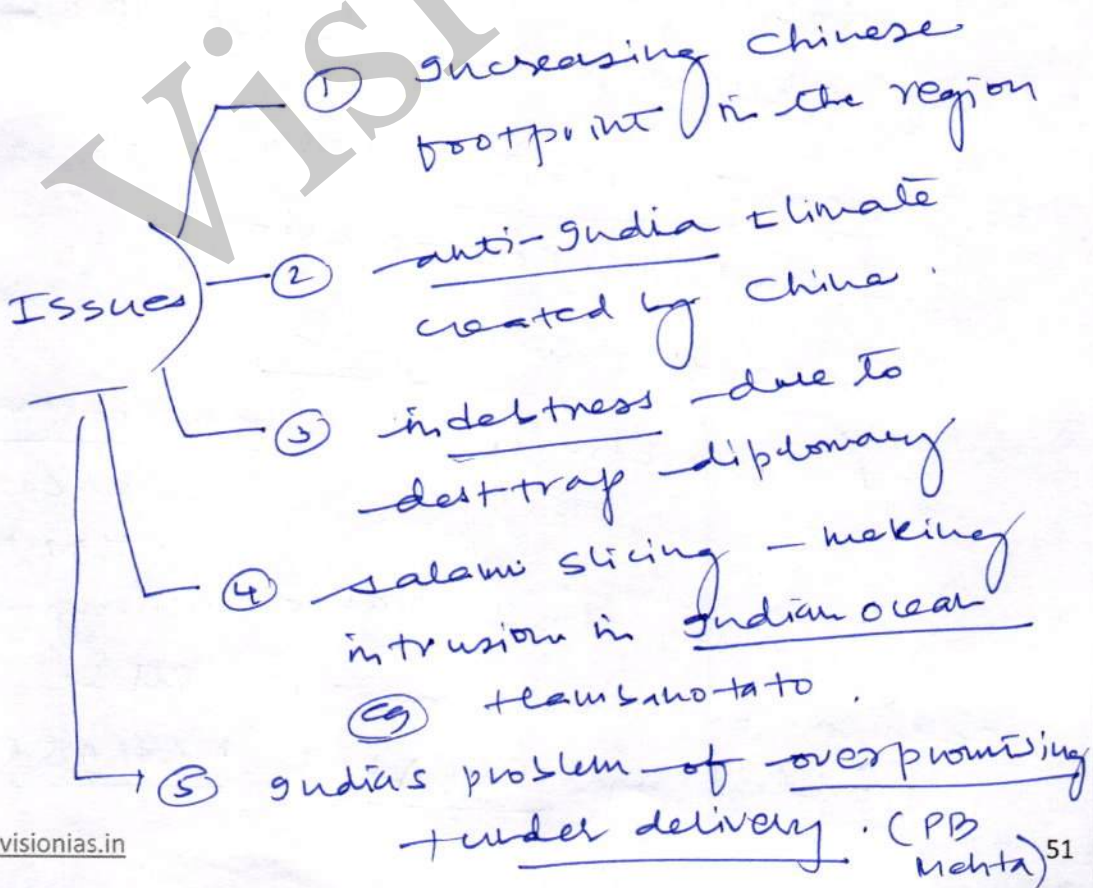 Visi
① Increasing Chinese
footprint in the region
② anti-India climate
created by China.
Issues
③ indebtness due to
desttrap diplomacy
④ salami slicing - making
intrusion in Indian ocean
eg Hambanotato.
⑤ Indias problem of overpromising
+ under delivery. (PB
Mehta)
visionias.in
51